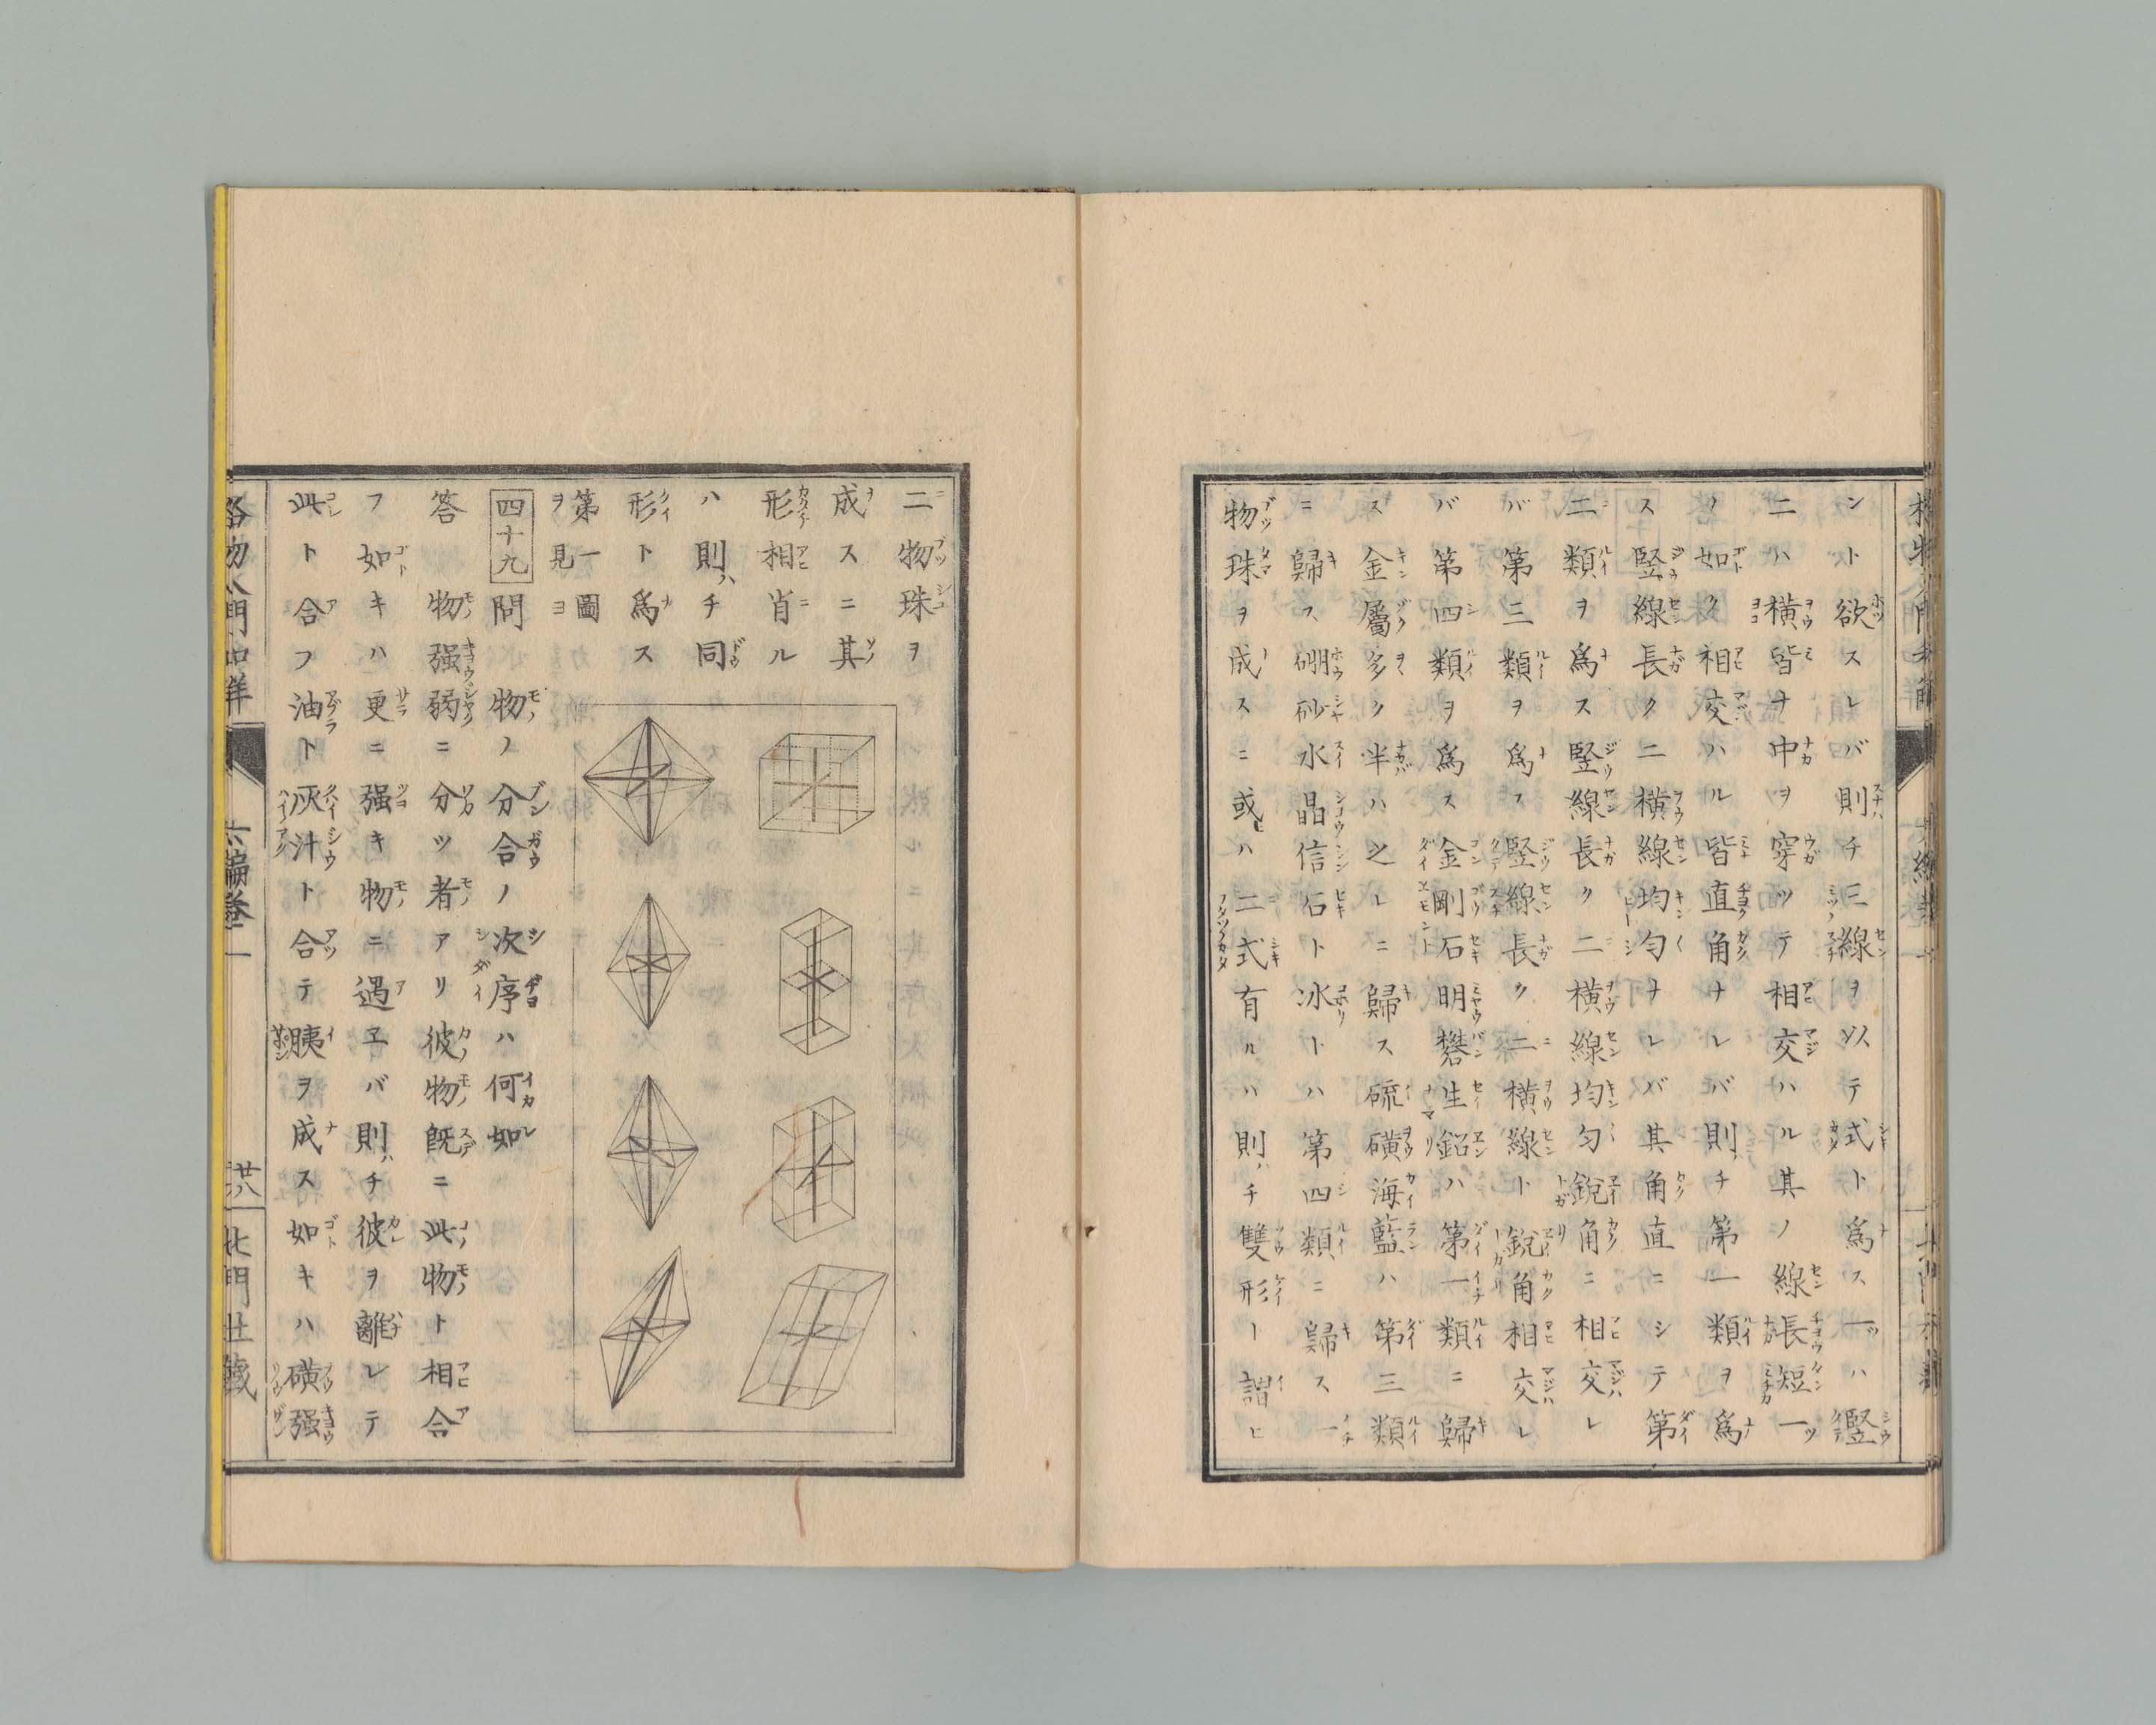 ント欲スレバ則チ三線ヲ以テ式ト爲ス一ハ竪
二ハ横皆ナ中ヲ穿ツテ相交ハル其ノ線長短一ツ
ノ如ク相交ハル皆直角ナレバ則チ第一類ヲ爲
ス竪線長ク二横線均匀ナレバ其角直ニシテ第
二類ヲ爲ス竪線長ク二横線均匀銳角ニ相交レ
バ第三類ヲ爲ス竪線長ク二横線ト銳角相交レ
バ第四類ヲ爲ス金剛石明礬生鉛ハ第一類ニ歸
ス金屬多ク半ハ之レニ歸ス硫磺海藍ハ第三類
ニ歸ス硼砂水晶信石ト冰トハ第四類ニ歸ス一
物珠ヲ成スニ或ハ二式有ルハ則チ雙形ト謂ヒ
二物珠ヲ
成スニ其
形相肖ル
ハ則チ同
形ト爲ス
第一圖
ヲ見ヨ
四十九問 物ノ分合ノ次序ハ何如
答 物强弱ニ分ツ者アリ彼物旣ニ此物ト相合
フ如キハ更ニ强キ物ニ遇ヱバ則チ彼ヲ離レテ
此ト合フ油ト灰汁ト合テ胰ヲ成ス如キハ磺强
六編卷一
北門社藏